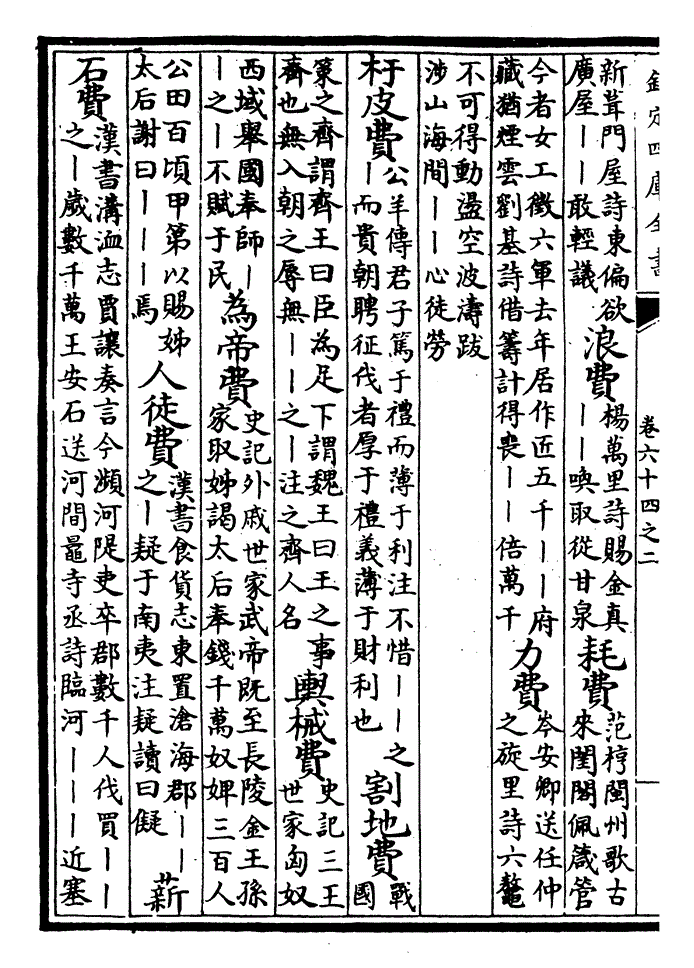 欽定四庫全書
卷六十四之二
新葺門屋詩東偏欲
廣屋丨丨敢輕議
浪費
楊萬里詩賜金真
丨丨喚取從甘泉
耗費
范梈閩州歌古
來閨閤佩箴管
今者女工徵六軍去年居作近五千丨丨府
藏猶煙雲劉基詩借籌計得喪丨丨倍萬千
力費
岑安卿送任仲
之旋里詩六鼇
不可得動盪空波濤跋
涉山海間丨丨心徒勞
杅皮費
公羊傳君子篤于禮而薄于利注不惜丨丨之
丨而貴朝聘征伐者厚于禮義薄于財利也
割地費
戰
國
策之齊謂齊王曰臣為足下謂魏王曰王之事
齊也無入朝之辱無丨丨之丨注之齊人名
輿械費
史記三王
世家匈奴
西域舉國奉師丨
丨之丨不賦于民
為帝費
史記外戚世家武帝既至長陵金王孫
家取姊謁太后奉錢千萬奴婢三百人
公田百頃甲第以賜姊
太后謝曰丨丨丨焉
人徒費
漢書食貨志東置滄海郡丨丨
之丨疑于南夷注疑讀曰儗
薪
石費
漢書溝洫志賈讓奏言今瀕河隄吏卒郡數千人伐買丨丨
之丨歲數千萬王安石送河間鼂寺丞詩臨河丨丨丨近塞